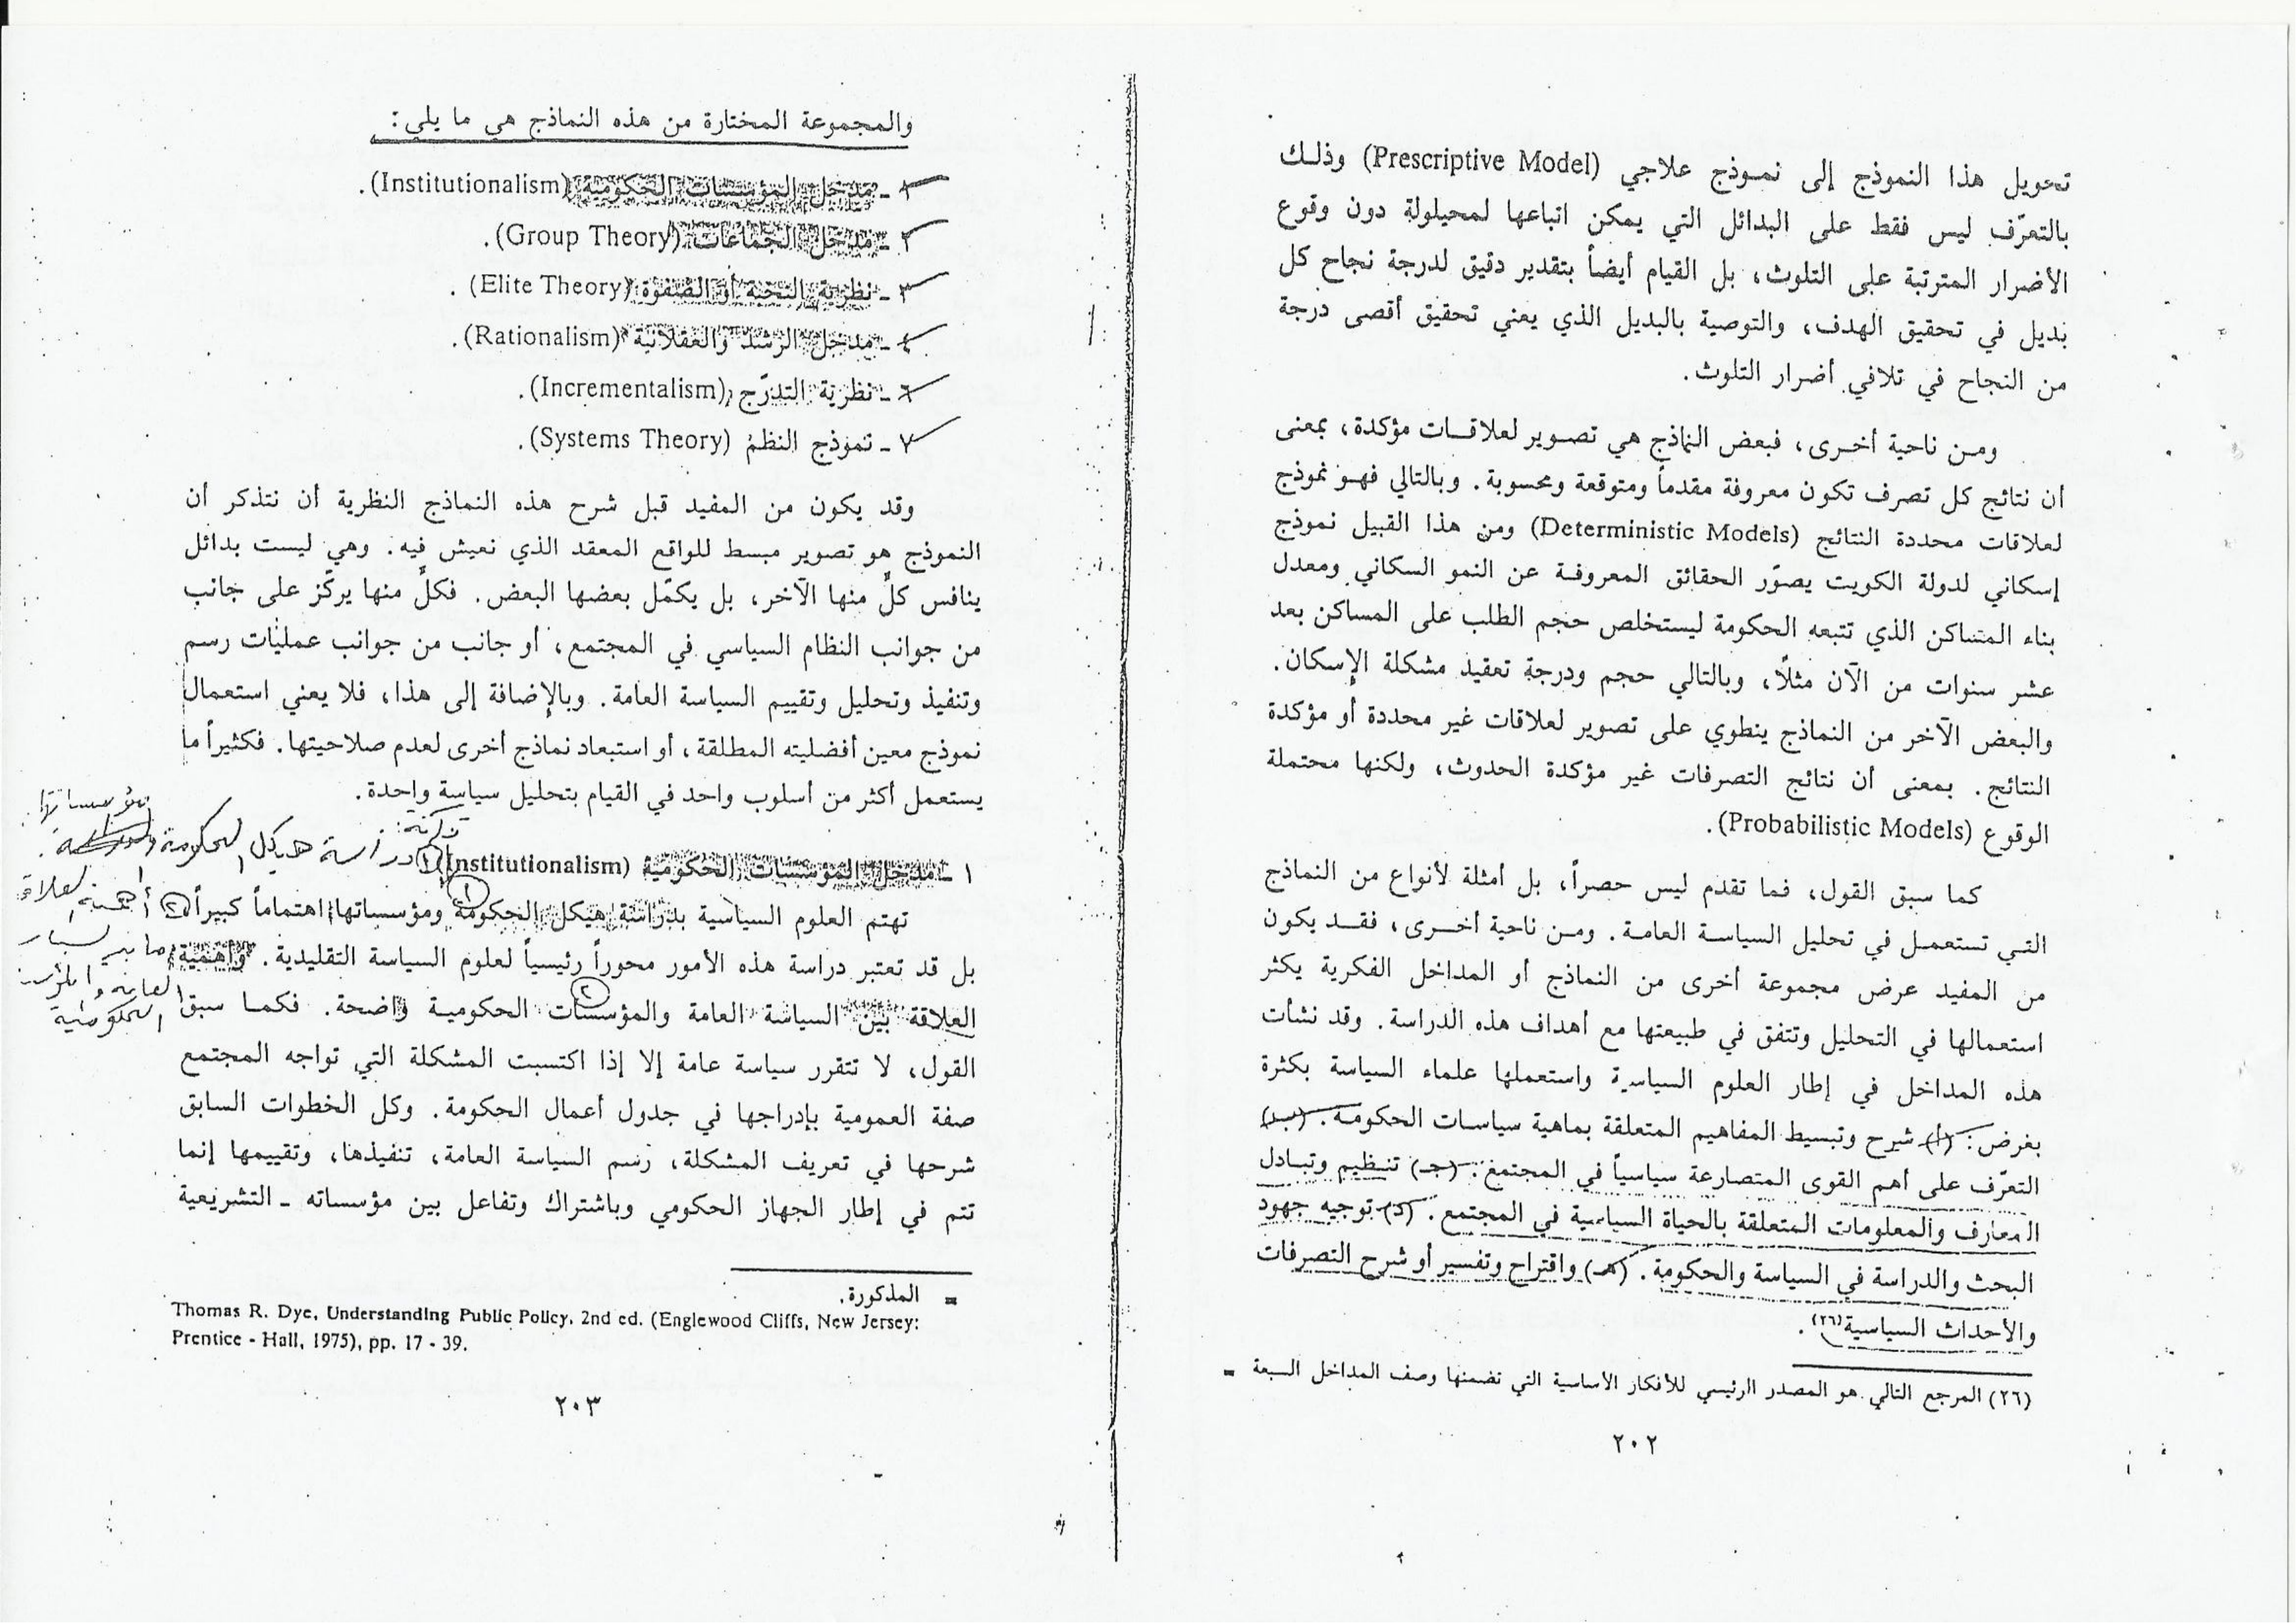 تحويل هذا النموذج إلى نموذج علاجي (Prescriptive Model) وذلك
بالتعرّف ليس فقط على البدائل التي يمكن اتباعها لمحيلولة دون وقوع
الأضرار المترتبة على التلوث، بل القيام أيضاً بتقدير دقيق لدرجة نجاح كل
بديل في تحقيق الهدف، والتوصية بالبديل الذي يعني تحقيق أقصى درجة
من النجاح في تلافي أضرار التلوث.
ومن ناحية أخرى، فبعض النماذج هي تصوير لعلاقات مؤكدة، بمعنى
أن نتائج كل تصرف تكون معروفة مقدماً ومتوقعة ومحسوبة. وبالتالي فهو نموذج
لعلاقات محددة النتائج (Deterministic Models) ومن هذا القبيل نموذج
إسكاني لدولة الكويت يصوّر الحقائق المعروفة عن النمو السكاني ومعدل
بناء المساكن الذي تتبعه الحكومة ليستخلص حجم الطلب على المساكن بعد
عشر سنوات من الآن مثلاً، وبالتالي حجم ودرجة تعقيد مشكلة الإسكان.
والبعض الآخر من النماذج ينطوي على تصوير لعلاقات غير محددة أو مؤكدة
النتائج. بمعنى أن نتائج التصرفات غير مؤكدة الحدوث، ولكنها محتملة
الوقوع (Probabilistic Models).
كما سبق القول، فما تقدم ليس حصراً، بل أمثلة لأنواع من النماذج
التي تستعمل في تحليل السياسة العامة. ومن ناحية أخرى، فقد يكون
من المفيد عرض مجموعة أخرى من النماذج أو المداخل الفكرية يكثر
استعمالها في التحليل وتتفق في طبيعتها مع أهداف هذه الدراسة. وقد نشأت
هذه المداخل في إطار العلوم السياسية واستعملها علماء السياسة بكثرة
بغرض: (أ) شرح وتبسيط المفاهيم المتعلقة بماهية سياسات الحكومة. (ب)
التعرّف على أهم القوى المتصارعة سياسياً في المجتمع. (جـ) تنظيم وتبادل
المعارف والمعلومات المتعلقة بالحياة السياسية في المجتمع. (د) توجيه جهود
البحث والدراسة في السياسة والحكومة. (هـ) واقتراح وتفسير أو شرح التصرفات
والأحداث السياسية(٢٦).
(٢٦) المرجع التالي هو المصدر الرئيسي للأفكار الأساسية التي تضمنها وصف المداخل السبعة =
٢٠٢
والمجموعة المختارة من هذه النماذج هي ما يلي:
١ ـ مدخل المؤسسات الحكومية (Institutionalism).
٢ ـ مدخل الجماعات (Group Theory).
٣ ـ نظرية النخبة أو الصفوة (Elite Theory).
٤ ـ مدخل الرشد والعقلانية (Rationalism).
٦ ـ نظرية التدرّج (Incrementalism).
٧ ـ نموذج النظم (Systems Theory).
وقد يكون من المفيد قبل شرح هذه النماذج النظرية أن نتذكر أن
النموذج هو تصوير مبسط للواقع المعقد الذي نعيش فيه. وهي ليست بدائل
ينافس كلٌّ منها الآخر، بل يكمّل بعضها البعض. فكلٌّ منها يركّز على جانب
من جوانب النظام السياسي في المجتمع، أو جانب من جوانب عمليات رسم
وتنفيذ وتحليل وتقييم السياسة العامة. وبالإضافة إلى هذا، فلا يعني استعمال
نموذج معين أفضليته المطلقة، أو استبعاد نماذج أخرى لعدم صلاحيتها. فكثيراً ما
يستعمل أكثر من أسلوب واحد في القيام بتحليل سياسة واحدة.
١ ـ مدخل المؤسسات الحكومية (Institutionalism) ① دراسة هيكل الحكومة
مؤسساتها
تهتم العلوم السياسية بدراسة هيكل الحكومة ومؤسساتها اهتماماً كبيراً. ② أهمية العلاقة
بل قد تعتبر دراسة هذه الأمور محوراً رئيسياً لعلوم السياسة التقليدية. وأهمية
العلاقة بين السياسة العامة والمؤسسات الحكومية واضحة. فكما سبق
العامة
الحكومية
القول، لا تتقرر سياسة عامة إلا إذا اكتسبت المشكلة التي تواجه المجتمع
صفة العمومية بإدراجها في جدول أعمال الحكومة. وكل الخطوات السابق
شرحها في تعريف المشكلة، رسم السياسة العامة، تنفيذها، وتقييمها إنما
تتم في إطار الجهاز الحكومي وباشتراك وتفاعل بين مؤسساته ـ التشريعية
= المذكورة.
Thomas R. Dye, Understanding Public Policy, 2nd ed. (Englewood Cliffs, New Jersey:
Prentice - Hall, 1975), pp. 17 - 39.
٢٠٣